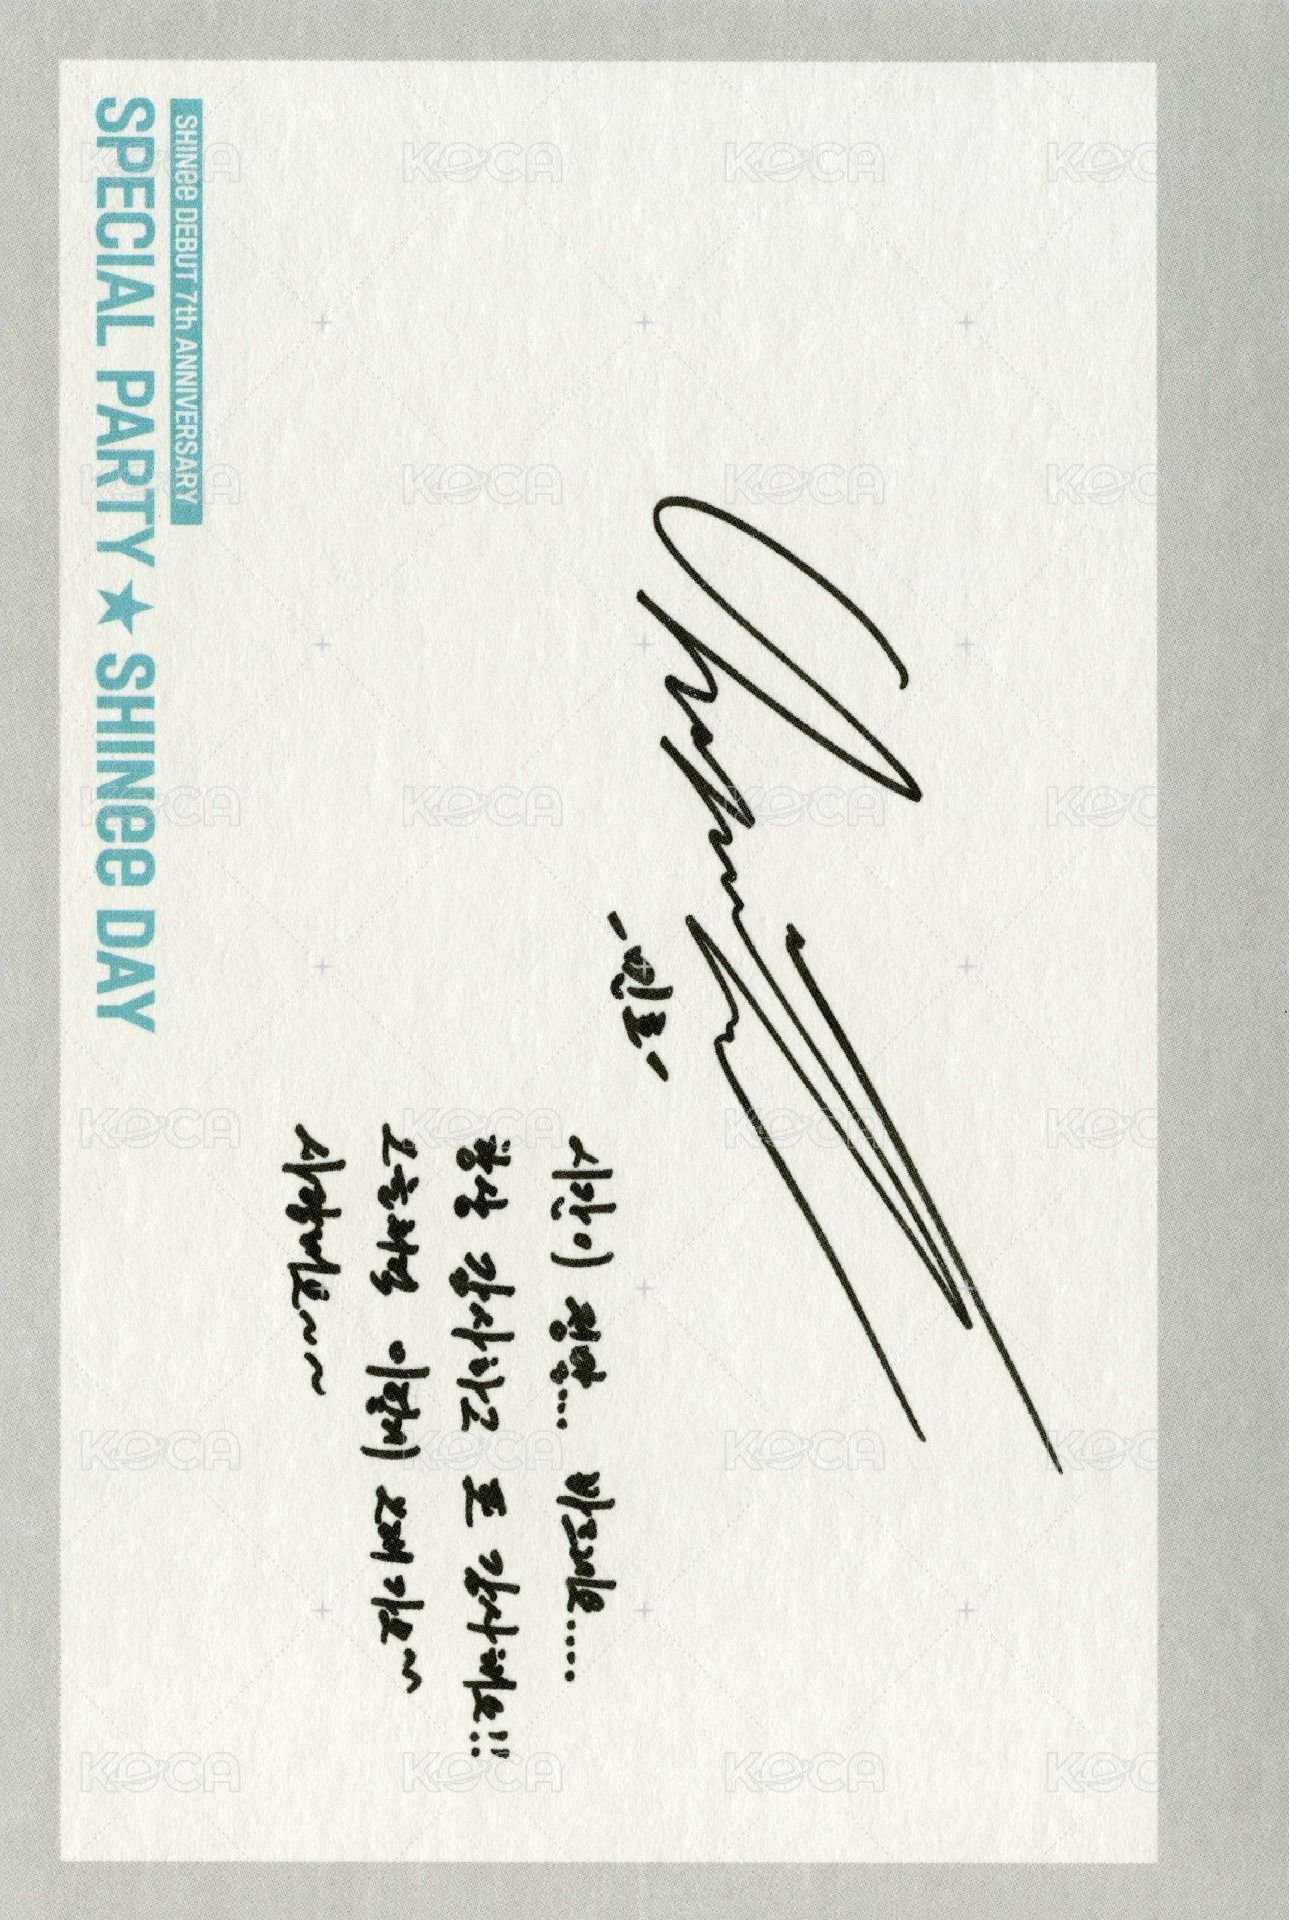 SHINee DEBUT 7th ANNIVERSARY
SPECIAL PARTY ★ SHINee DAY
-민호-
시간이 정말... 빠르네요....
항상 감사하고 또 감사해요!!
오늘처럼 이렇게 오래가요~
사랑해요~~
KOCA